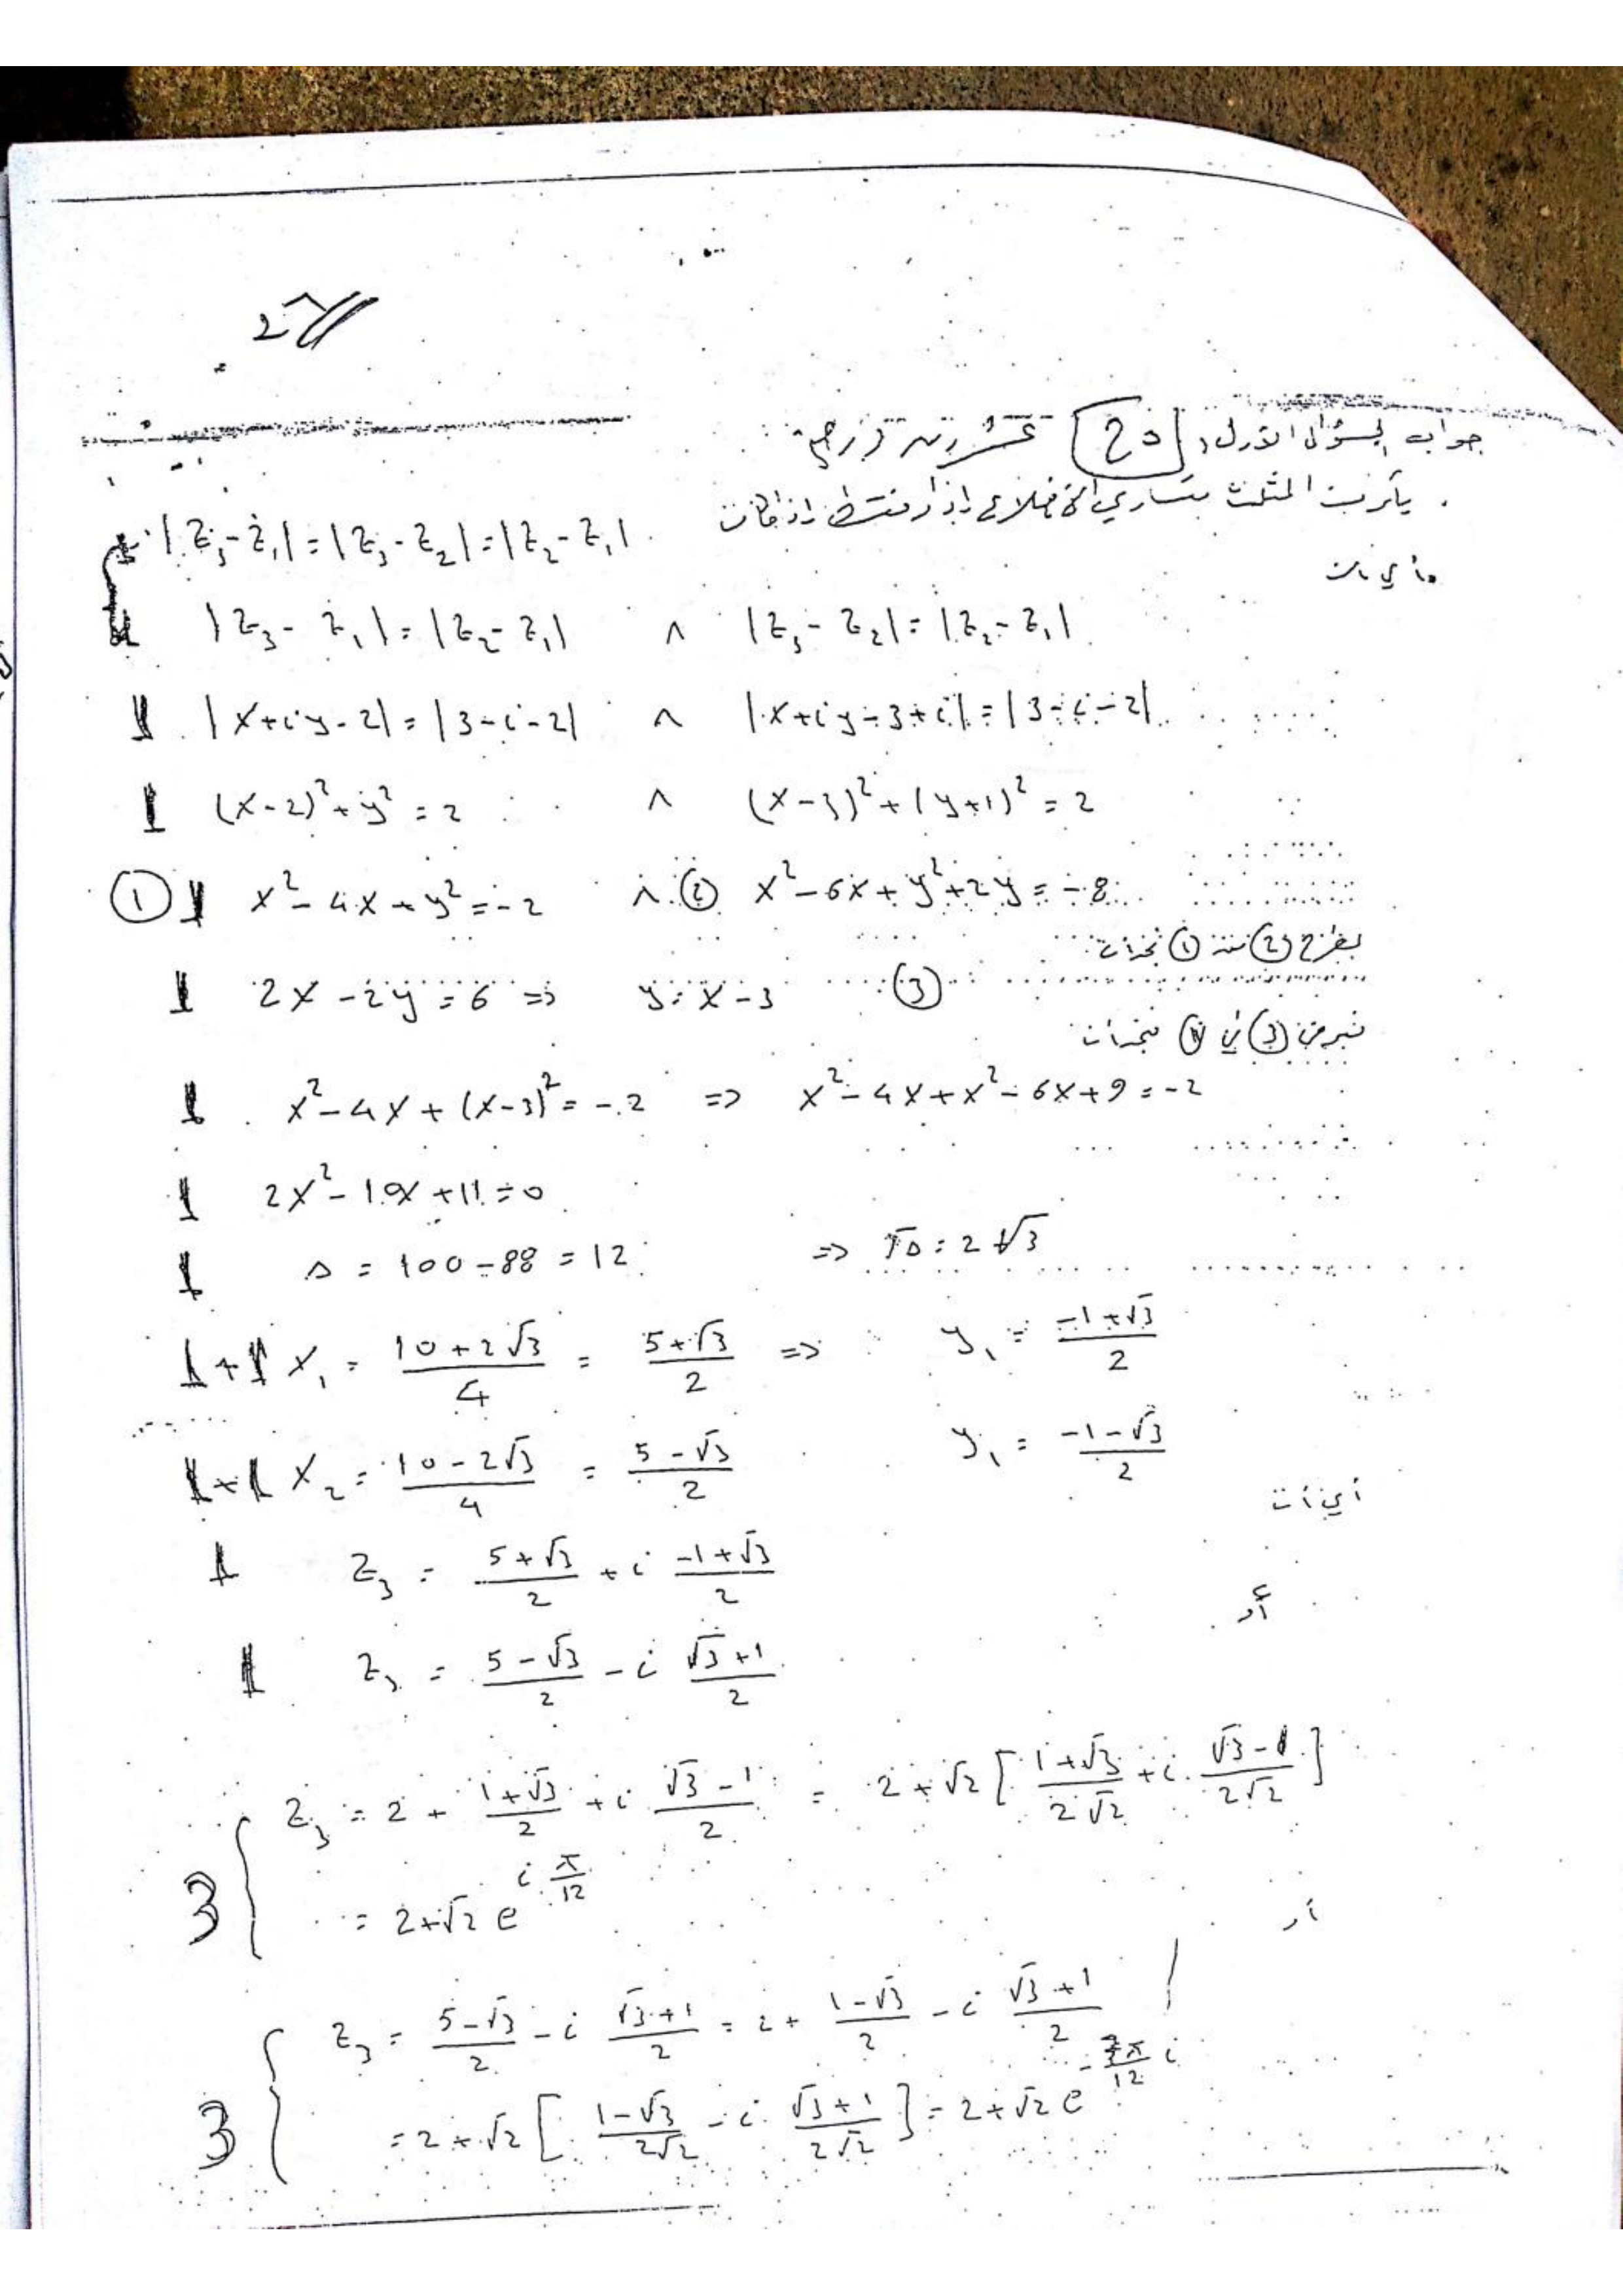 2
جواب السؤال الأول: 20 عشرون درجة
يكون المثلث متساوي الأضلاع إذا وفقط إذا كان
|z₃-z₁|=|z₃-z₂|=|z₂-z₁|
أي أن
1 |z₃-z₁|=|z₂-z₁| ∧ |z₃-z₂|=|z₂-z₁|
1 |x+iy-2|=|3-i-2| ∧ |x+iy-3+i|=|3-i-2|
1 (x-2)²+y²=2 ∧ (x-3)²+(y+1)²=2
① 1 x²-4x+y²=-2 ∧ ② x²-6x+y²+2y=-8
بطرح ② من ① نجد أن
1 2x-2y=6 ⇒ y=x-3 ③
نعوض ③ في ① فنجد أن
1 x²-4x+(x-3)²=-2 ⇒ x²-4x+x²-6x+9=-2
1 2x²-10x+11=0
1 Δ=100-88=12 ⇒ √Δ=2√3
1+1 x₁=(10+2√3)/4=(5+√3)/2 ⇒ y₁=(-1+√3)/2
1+1 x₂=(10-2√3)/4=(5-√3)/2 y₁=(-1-√3)/2
أي أن
1 z₃=(5+√3)/2+i(-1+√3)/2
أو
1 z₃=(5-√3)/2-i(√3+1)/2
z₃=2+(1+√3)/2+i(√3-1)/2=2+√2[(1+√3)/(2√2)+i(√3-1)/(2√2)]
3 =2+√2 e^(iπ/12)
أو
z₃=(5-√3)/2-i(√3+1)/2=2+(1-√3)/2-i(√3+1)/2
3 =2+√2[(1-√3)/(2√2)-i(√3+1)/(2√2)]=2+√2 e^(-7π/12 i)